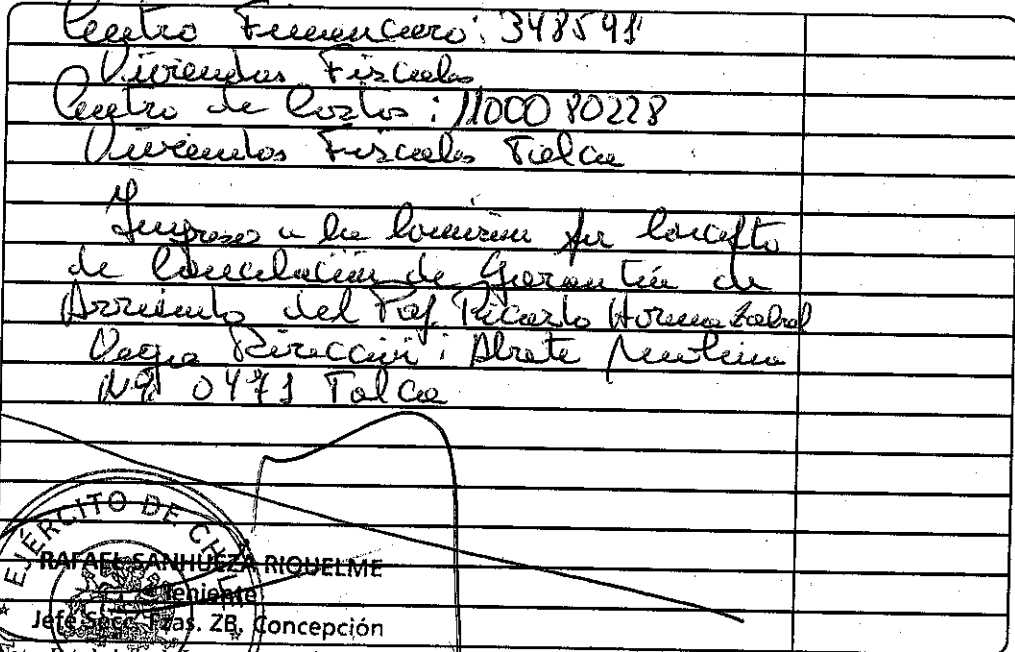 Centro Financiero: 348591
Viviendas Fiscales
Centro de Costos: 1100080228
Viviendas Fiscales Talca
Ingreso a la Comisión por Concepto
de Cancelación de Garantía de
Arriendo del Ricardo
Dirección: Abate Molina
Nº 0471 Talca
EJÉRCITO DE CHILE
RAFAEL SANHUEZA RIQUELME
Teniente
Jefe Secc. Fzas. ZB. Concepción